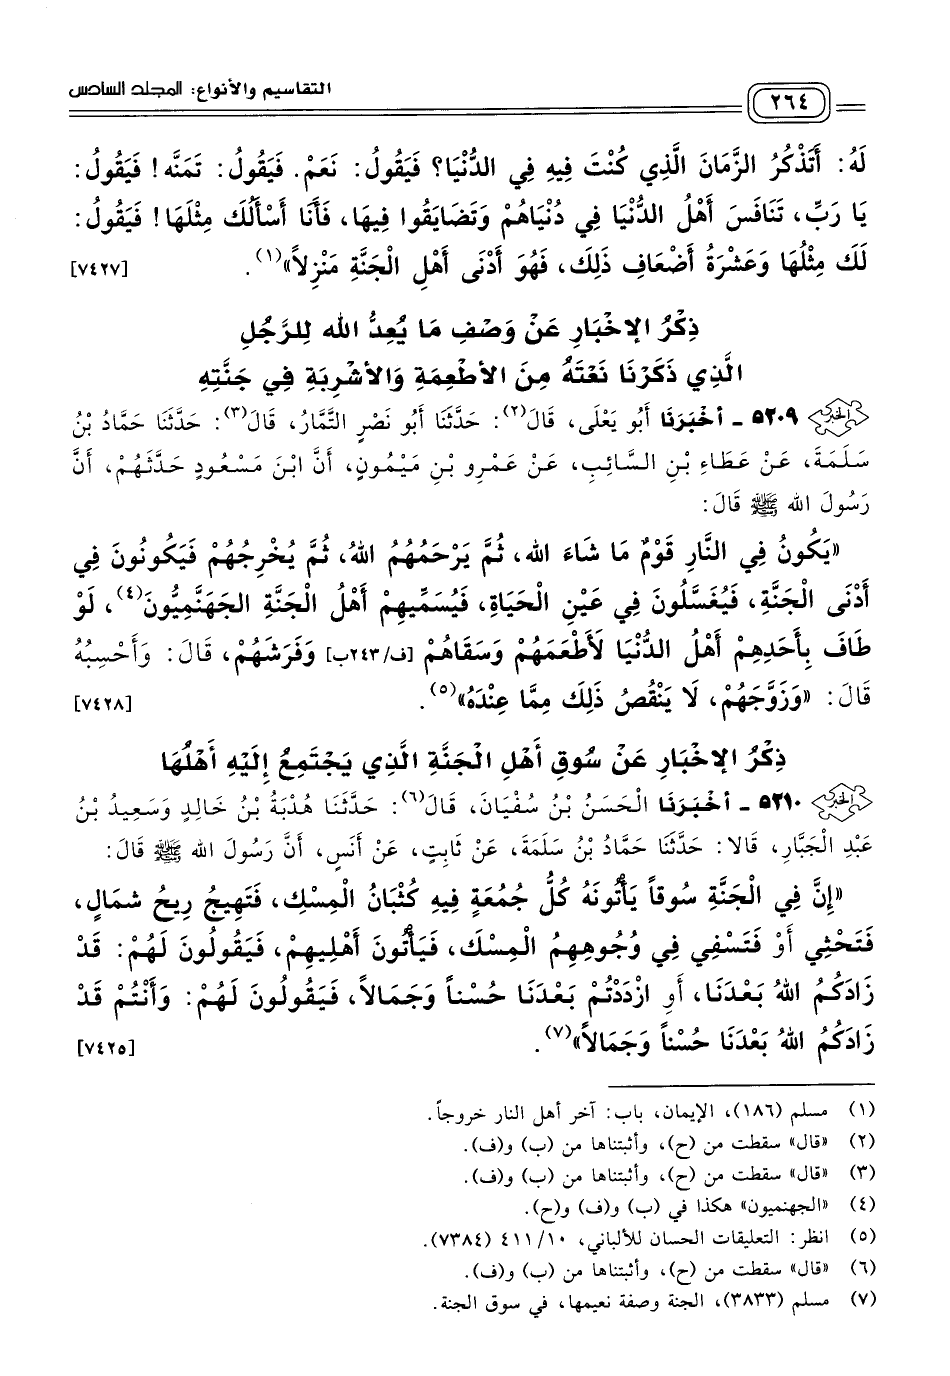 التقاسيم والأنواع: المجلد السادس
٢٦٤
لَهُ: أَتَذْكُرُ الزَّمَانَ الَّذِي كُنْتَ فِيهِ فِي الدُّنْيَا؟ فَيَقُولُ: نَعَمْ. فَيَقُولُ: تَمَنَّه! فَيَقُولُ:
يَا رَبِّ، تَنَافَسَ أَهْلُ الدُّنْيَا فِي دُنْيَاهُمْ وَتَضَايَقُوا فِيهَا، فَأَنَا أَسْأَلُكَ مِثْلَهَا! فَيَقُولُ:
لَكَ مِثْلُهَا وَعَشْرَةُ أَضْعَافِ ذَلِكَ، فَهُوَ أَدْنَى أَهْلِ الْجَنَّةِ مَنْزِلاً»(١). [٧٤٢٧]
ذِكْرُ الإخْبَارِ عَنْ وَصْفِ مَا يُعِدُّ الله لِلرَّجُلِ
الَّذِي ذَكَرْنَا نَعْتَهُ مِنَ الأطْعِمَةِ وَالأشْرِبَةِ فِي جَنَّتِهِ
الخبر ٥٢٠٩ - أخْبَرَنَا أَبُو يَعْلَى، قَالَ(٢): حَدَّثَنَا أَبُو نَصْرٍ التَّمَّارُ، قَالَ(٣): حَدَّثَنَا حَمَّادُ بْنُ
سَلَمَةَ، عَنْ عَطَاءِ بْنِ السَّائِبِ، عَنْ عَمْرِو بْنِ مَيْمُونٍ، أَنَّ ابْنَ مَسْعُودٍ حَدَّثَهُمْ، أَنَّ
رَسُولَ الله ﷺ قَالَ:
«يَكُونُ فِي النَّارِ قَوْمٌ مَا شَاءَ الله، ثُمَّ يَرْحَمُهُمُ اللهُ، ثُمَّ يُخْرِجُهُمْ فَيَكُونُونَ فِي
أَدْنَى الْجَنَّةِ، فَيُغَسَّلُونَ فِي عَيْنِ الْحَيَاةِ، فَيُسَمِّيهِمْ أَهْلُ الْجَنَّةِ الجَهَنَّمِيُّونَ(٤)، لَوْ
طَافَ بِأَحَدِهِمْ أَهْلُ الدُّنْيَا لَأَطْعَمَهُمْ وَسَقَاهُمْ [ف/٢٤٣ب] وَفَرَشَهُمْ، قَالَ: وَأَحْسِبُهُ
قَالَ: «وَزَوَّجَهُمْ، لَا يَنْقُصُ ذَلِكَ مِمَّا عِنْدَهُ»(٥). [٧٤٢٨]
ذِكْرُ الإخْبَارِ عَنْ سُوقِ أَهْلِ الْجَنَّةِ الَّذِي يَجْتَمِعُ إِلَيْهِ أَهْلُهَا
الخبر ٥٢١٠ - أخْبَرَنَا الْحَسَنُ بْنُ سُفْيَانَ، قَالَ(٦): حَدَّثَنَا هُدْبَةُ بْنُ خَالِدٍ وَسَعِيدُ بْنُ
عَبْدِ الْجَبَّارِ، قَالا: حَدَّثَنَا حَمَّادُ بْنُ سَلَمَةَ، عَنْ ثَابِتٍ، عَنْ أَنَسٍ، أَنَّ رَسُولَ الله ﷺ قَالَ:
«إِنَّ فِي الْجَنَّةِ سُوقاً يَأْتُونَهُ كُلَّ جُمُعَةٍ فِيهِ كُثْبَانُ الْمِسْكِ، فَتَهِيجُ رِيحُ شمَالٍ،
فَتَحْثِي أَوْ فَتَسْفِي فِي وُجُوهِهِمُ الْمِسْكَ، فَيَأْتُونَ أَهْلِيهِمْ، فَيَقُولُونَ لَهُمْ: قَدْ
زَادَكُمُ اللهُ بَعْدَنَا، أَوِ ازْدَدْتُمْ بَعْدَنَا حُسْناً وَجَمَالاً، فَيَقُولُونَ لَهُمْ: وَأَنْتُمْ قَدْ
زَادَكُمُ اللهُ بَعْدَنَا حُسْناً وَجَمَالاً»(٧). [٧٤٢٥]
(١) مسلم (١٨٦)، الإيمان، باب: آخر أهل النار خروجاً.
(٢) «قال» سقطت من (ح)، وأثبتناها من (ب) و(ف).
(٣) «قال» سقطت من (ح)، وأثبتناها من (ب) و(ف).
(٤) «الجهنميون» هكذا في (ب) و(ف) و(ح).
(٥) انظر: التعليقات الحسان للألباني، ١٠/ ٤١١ (٧٣٨٤).
(٦) «قال» سقطت من (ح)، وأثبتناها من (ب) و(ف).
(٧) مسلم (٣٨٣٣)، الجنة وصفة نعيمها، في سوق الجنة.